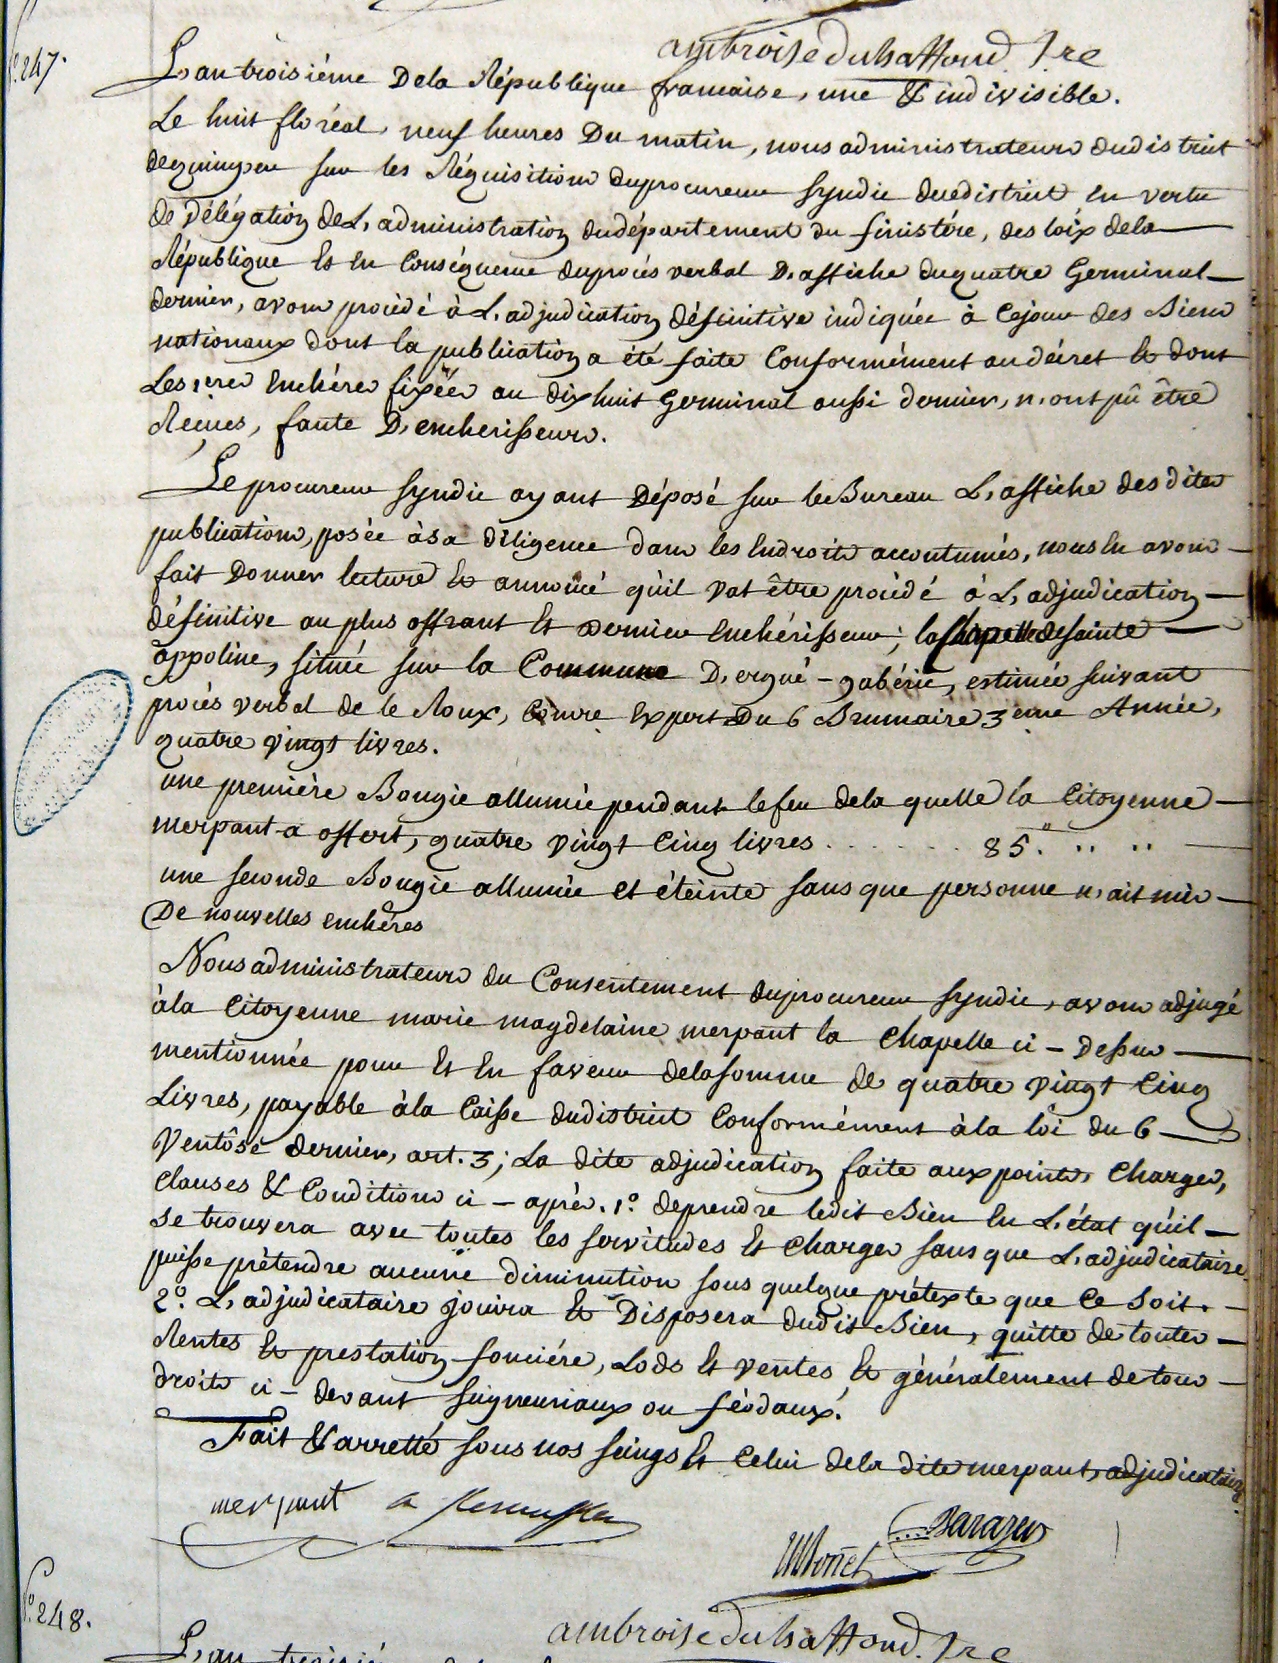 ambroise duhaffond. Sre
N.° 247.
L'an troisiéme De la République francaise, une & indivisible.
Le huit floréal, neuf heures Du matin, nous administrateurs du district
de quimper sur les Réquisitions du procureur syndic du district en vertu
de Délégation de L'administration du département du finistére, des loix de la
République Et En Conséquence du procès verbal D'affiche du quatre Germinal
dernier, avons procédé à L'adjudication définitive indiquée à Ce jour des Biens
nationaux dont la publication a été faite Conformément au décret & dont
Les 1ères Enchéres fixées au dix huit Germinal aussi dernier, n'ont pû être
Reçues, faute D'encherisseurs.
Le procureur syndic ayant Déposé sur le Bureau L'affiche des dites
publications, posée à sa diligence dans les Endroits accoutumés, nous En avons
fait Donner lecture & annoncé qu'il vat être procédé à L'adjudication
définitive au plus offrant Et dernier Enchérisseur; la chapelle de sainte
appoline, située sur la Commune D'ergué-gabéric, estimée suivant
procès verbal de le Roux, expert Du 6 Brumaire 3eme Année,
quatre vingt livres.
une première Bougie allumée pendant le feu de la quelle la Citoyenne
merpaut a offert, quatre vingt Cinq livres . . . . . . . 85.
une seconde Bougie allumée et éteinte sans que personne n'ait mis
De nouvelles enchères
Nous administrateurs du Consentement du procureur syndic, avons adjugé
à la Citoyenne marie magdelaine merpaut la Chapelle ci-Dessus
mentionnée pour Et En faveur de la somme de quatre vingt Cinq
Livres, payable à la Caisse du district Conformément à la loi du 6
Ventôse dernier, art. 3; La dite adjudication faite aux points, Charges,
Clauses & Conditions ci-après. 1.° de prendre ledit Bien En L'état qu'il
se trouvera avec toutes les servitudes Et Charges sans que L'adjudicataire
puisse prétendre aucune diminution sous quelque prétexte que Ce Soit.
2.° L'adjudicataire jouira & Disposera dudit Bien, quitte de toutes
Rentes & prestation fonciére, Lods Et ventes & généralement de tous
droits ci-devant seigneuriaux ou féodaux.
Fait & arretté sous nos seings Et Celui de la dite merpaut, adjudicataire.
merpaut
N.° 248.
ambroise duhaffond. Sre
L'an troisié